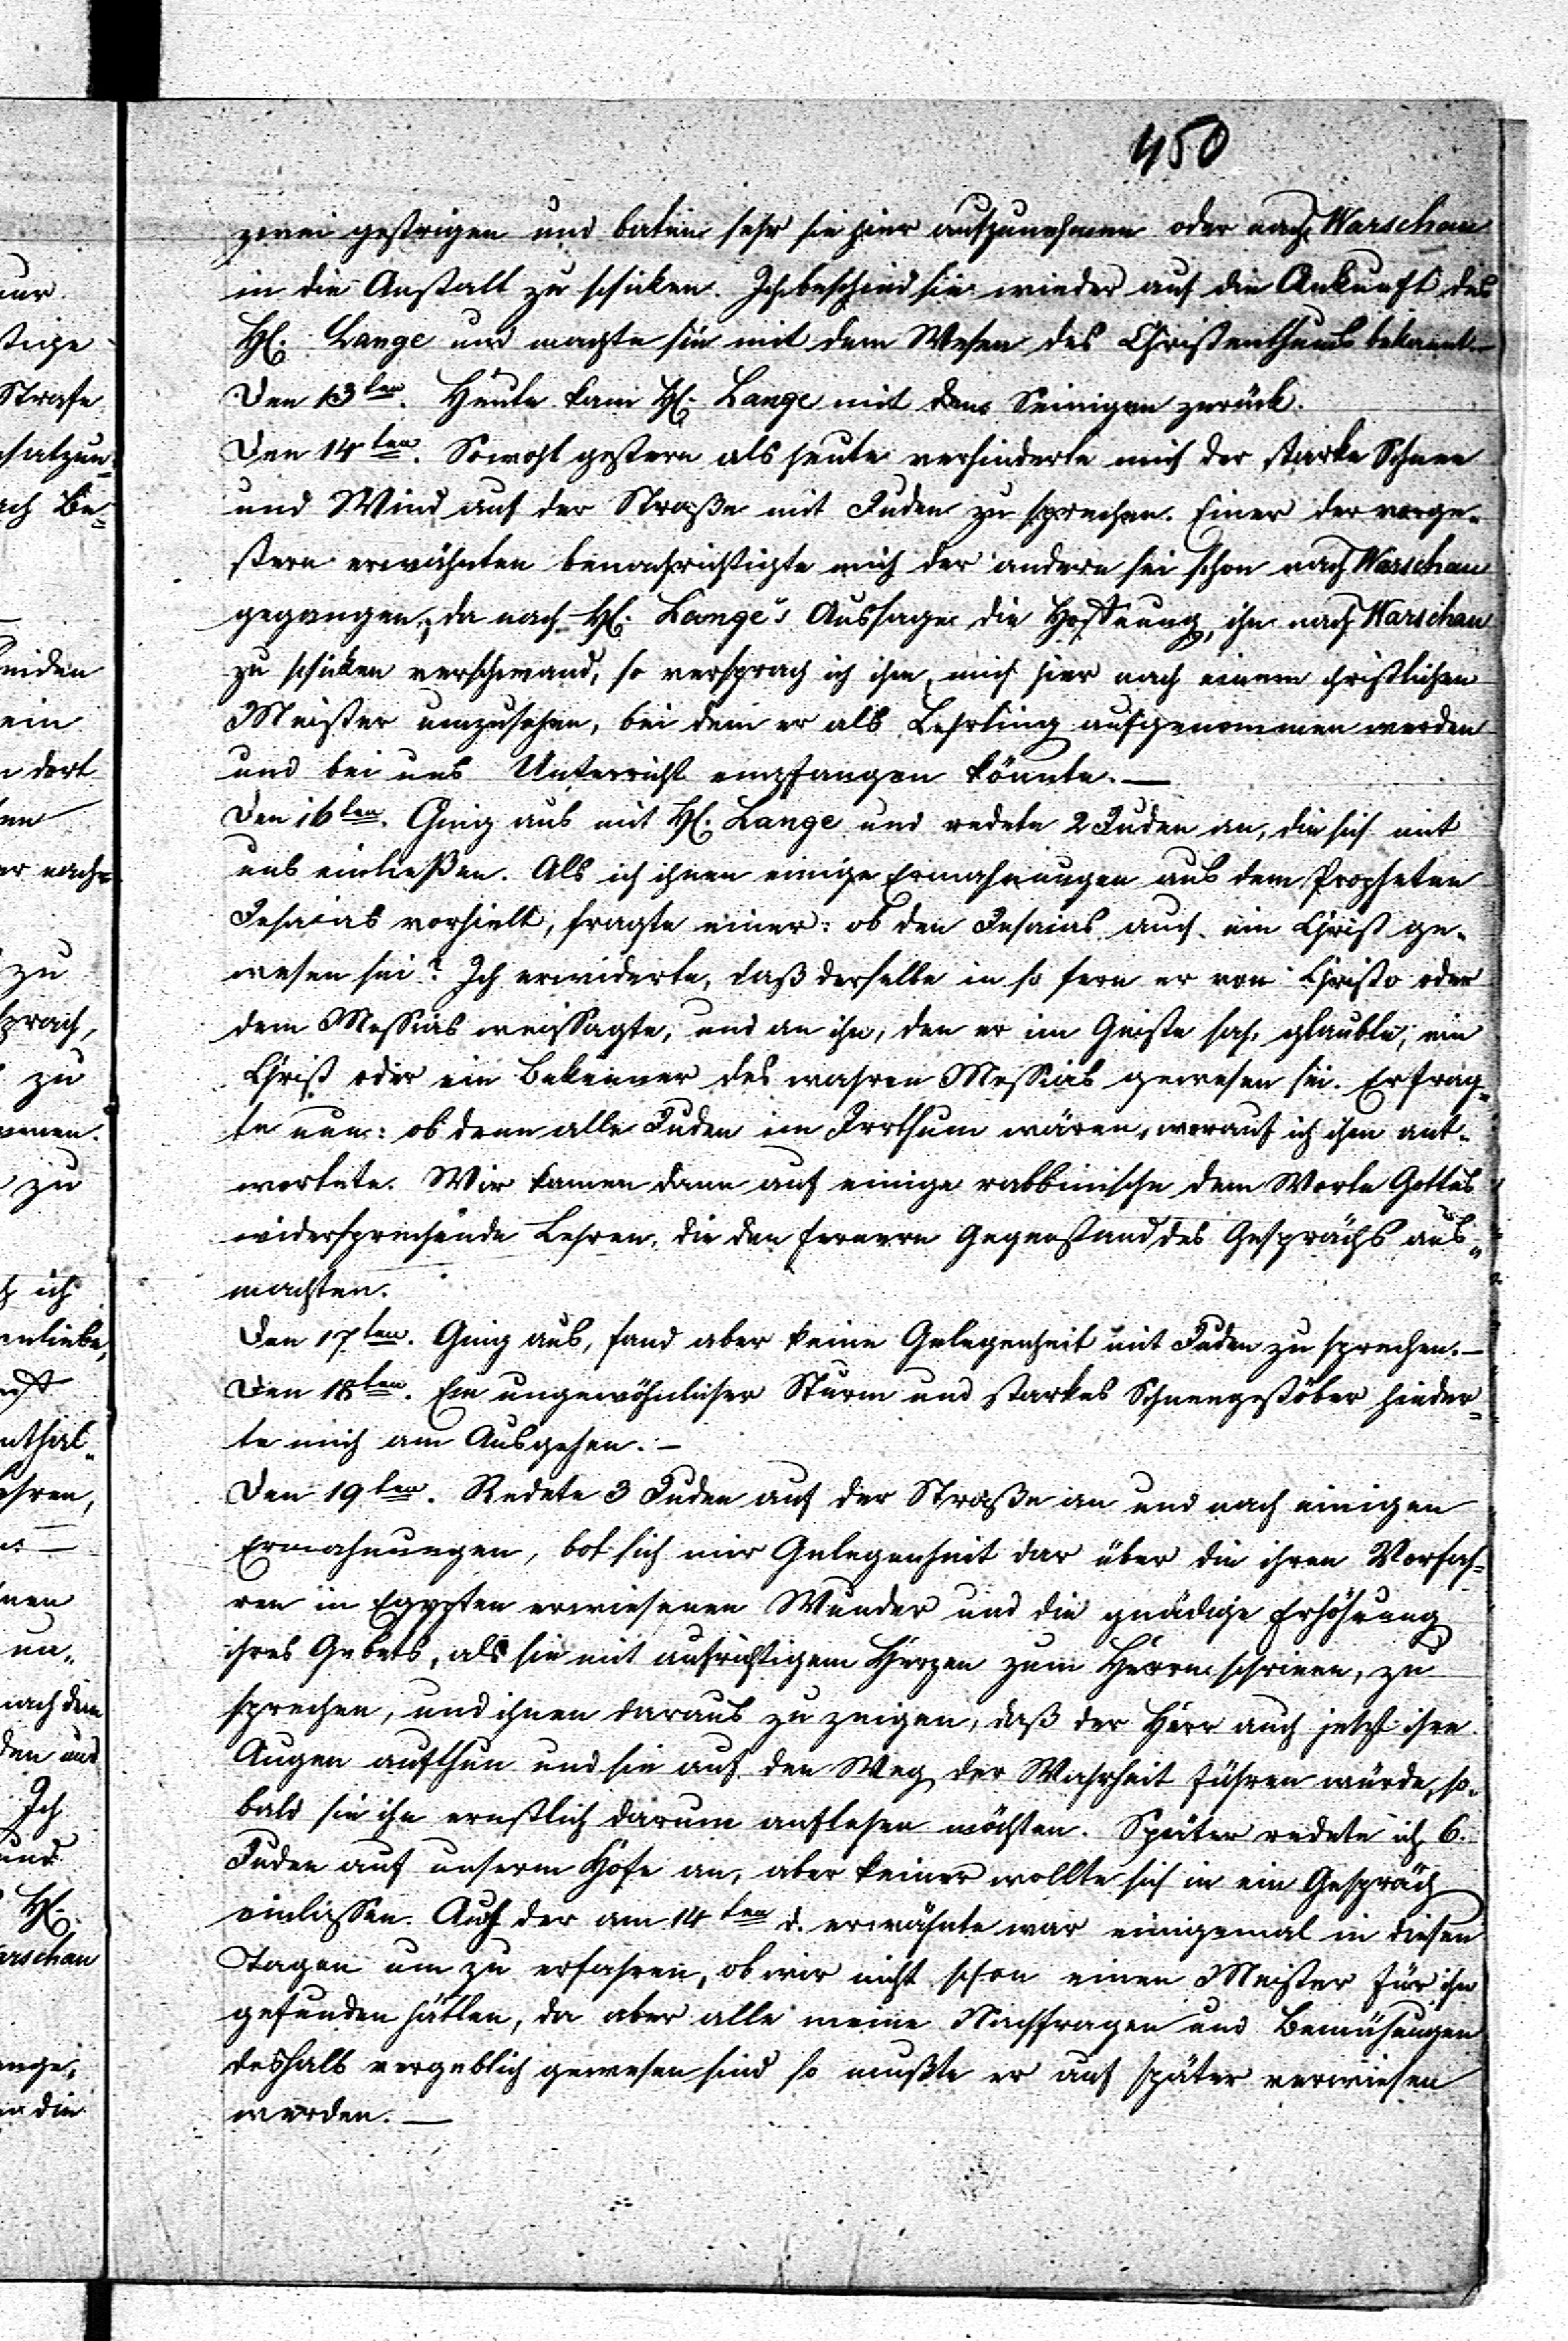 450
zwei gestrigen und baten sehr sie hier aufzunehmen oder nach Warschau
in die Anstalt zu schicken. Ich beschied sie wieder auf die Ankunft des
H. Lange und machte sie mit dem Wesen des Christenthums bekannt.—
Den 13ten. Heute kam H. Lange mit den Seinigen zurück.
Den 14ten. Sowohl gestern als heute verhinderte mich der starke Schnee
und Wind auf der Straße mit Juden zu sprechen. Einer der vorge-
stern erwähnten benachrichtigte mich der andere sei schon nach Warschau
gegangen; da nach H. Lange's Aussage die Hoffnung, ihn nach Warschau
zu schicken verschwand, so versprach ich ihm, mich hier nach einem christlichen
Meister umzusehen, bei dem er als Lehrling aufgenommen werden
und bei uns Unterricht empfangen könnte.—
Den 16ten. Ging aus mit H. Lange und redete 2 Juden an, die sich mit
uns einließen. Als ich ihnen einige Ermahnungen aus dem Propheten
Jesaias vorhielt, fragte einer: ob den Jesaias auch ein Christ ge-
wesen sei? Ich erwiderte, daß derselbe in so fern er von Christo oder
dem Messias weissagte, und an ihn, den er im Geiste sah, glaubte, ein
Christ oder ein Bekenner des wahren Messias gewesen sei. Er frag-
te nun: ob denn alle Juden im Irrthum wären, worauf ich ihm ant-
wortete. Wir kamen dann auf einige rabbinische dem Worte Gottes
widersprechende Lehren, die den fernern Gegenstand des Gesprächs aus-
machten.
Den 17ten. Ging aus, fand aber keine Gelegenheit mit Juden zu sprechen.—
Den 18ten. Ein ungewöhnlicher Sturm und starkes Schneegestöber hinder-
te mich am Ausgehen.—
Den 19ten. Redete 3 Juden auf der Straße an und nach einigen
Ermahnungen, bot sich mir Gelegenheit dar über die ihren Vorfah-
ren in Egypten erwiesenen Wunder und die gnädige Erhöhrung
ihres Gebets, als sie mit aufrichtigem Herzen zum Herrn schrieen, zu
sprechen, und ihnen daraus zu zeigen, daß der Herr auch jetzt ihre
Augen aufthun und sie auf den Weg der Wahrheit führen würde, so-
bald sie ihn ernstlich darum anflehen möchten. Später redete ich 6.
Juden auf unserm Hofe an, aber keiner wollte sich in ein Gespräch
einlassen. Auch der am 14ten d. erwähnte war einigemal in diesen
Tagen um zu erfahren, ob wir nicht schon einen Meister für ihn
gefunden hätten, da aber alle meine Nachfragen und Bemühungen
deshalb vergeblich gewesen sind so mußte er auf später verwiesen
werden.—